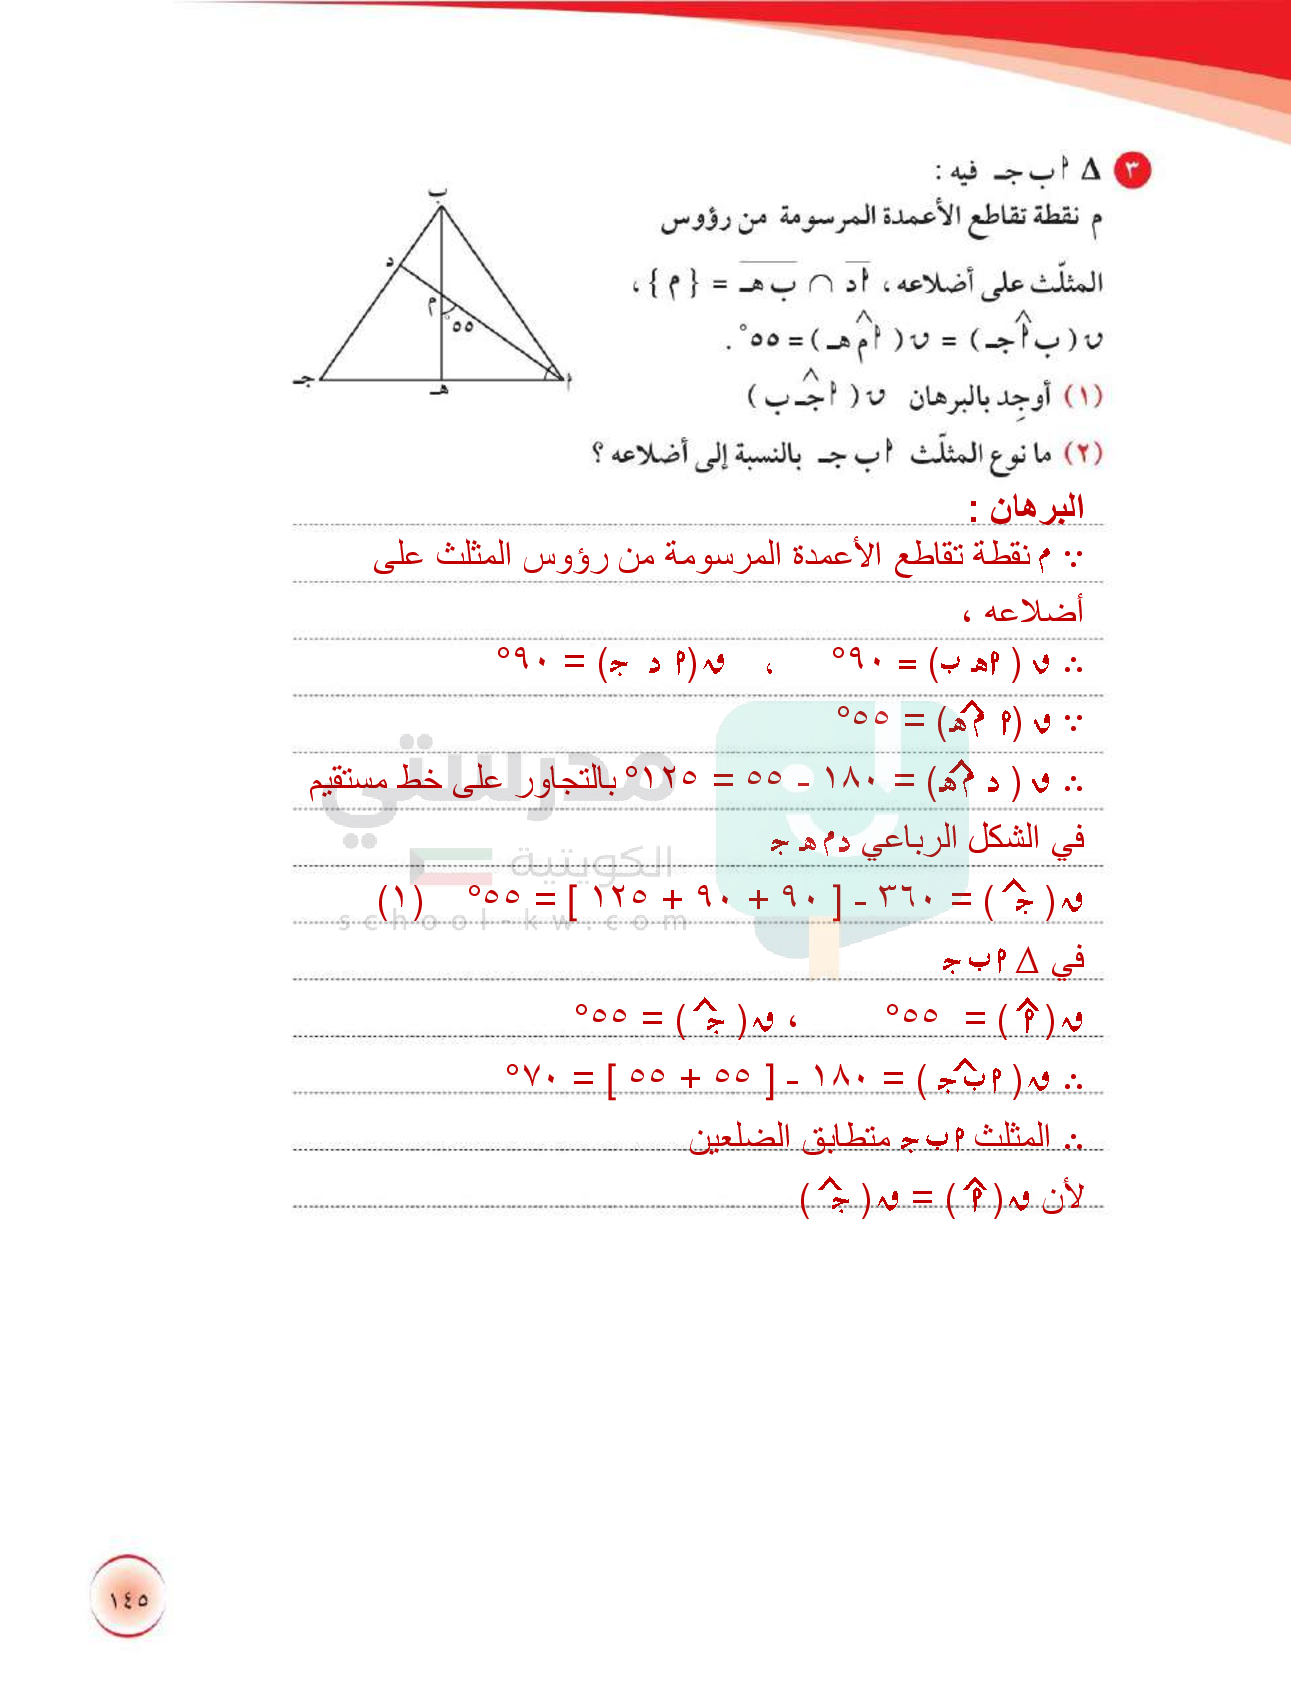 ٣ ∆ أ ب جـ فيه :
م نقطة تقاطع الأعمدة المرسومة من رؤوس
المثلّث على أضلاعه ، أد ∩ ب هـ = { م } ،
ق ( ب أ جـ ) = ق ( أ م هـ ) = ٥٥° .
(١) أوجِد بالبرهان ق ( أ جـ ب )
(٢) ما نوع المثلّث أ ب جـ بالنسبة إلى أضلاعه ؟
ب
د
م
٥٥°
جـ
هـ
أ
البرهان :
∵ م نقطة تقاطع الأعمدة المرسومة من رؤوس المثلث على
أضلاعه ،
∴ ق ( م هـ ب) = ٩٠° ، ق (م د ج) = ٩٠°
∵ ق (أ م هـ) = ٥٥°
∴ ق ( د م هـ) = ١٨٠ - ٥٥ = ١٢٥° بالتجاور على خط مستقيم
في الشكل الرباعي د م هـ ج
ق ( ج ) = ٣٦٠ - [ ٩٠ + ٩٠ + ١٢٥ ] = ٥٥° (١)
في ∆ أ ب ج
ق ( أ ) = ٥٥° ، ق ( ج ) = ٥٥°
∴ ق ( أ ب ج ) = ١٨٠ - [ ٥٥ + ٥٥ ] = ٧٠°
∴ المثلث أ ب ج متطابق الضلعين
لأن ق ( أ ) = ق ( ج )
مدرستي
الكويتية
school-kw.com
١٤٥